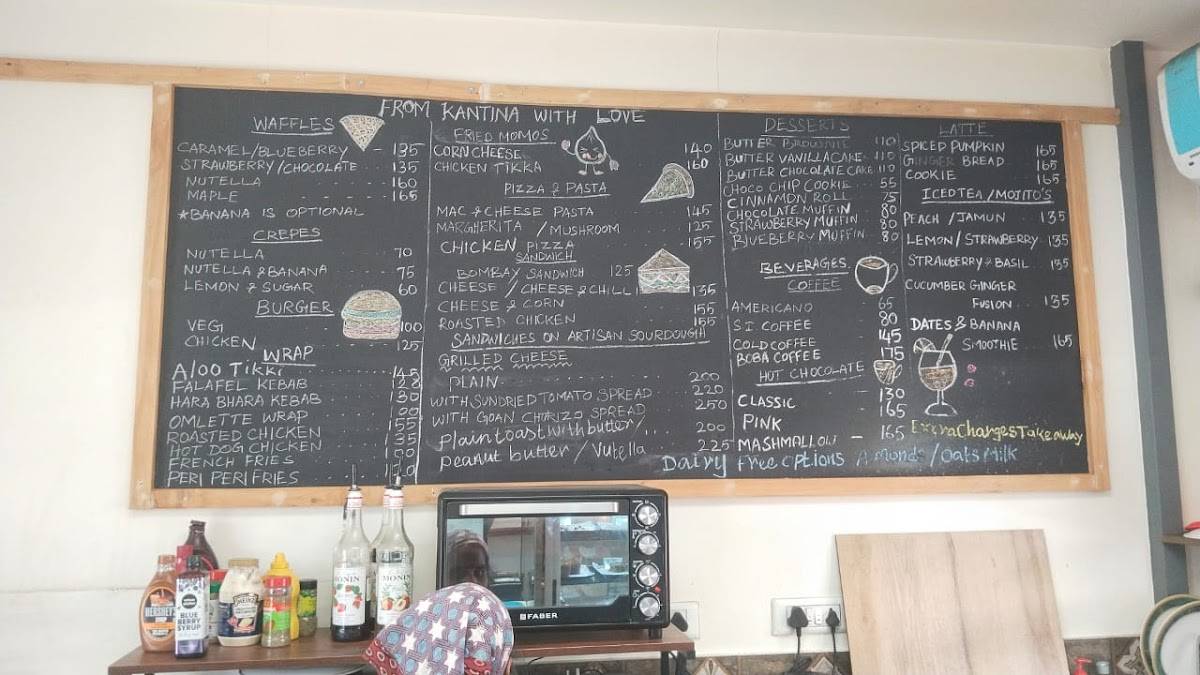 FROM KANTINA WITH LOVE
WAFFLES
CARAMEL/BLUEBERRY - 135
STRAWBERRY/CHOCOLATE 135
NUTELLA 160
MAPLE 165
*BANANA IS OPTIONAL
CREPES
NUTELLA 70
NUTELLA & BANANA 75
LEMON & SUGAR 60
BURGER
VEG 100
CHICKEN 125
WRAP
Aloo Tikki
FALAFEL KEBAB
HARA BHARA KEBAB
OMLETTE WRAP
ROASTED CHICKEN
HOT DOG CHICKEN
FRENCH FRIES
PERI PERI FRIES
FRIED MOMOS
CORN CHEESE 140
CHICKEN TIKKA 160
PIZZA & PASTA
MAC & CHEESE PASTA 145
MARGHERITA / MUSHROOM 125
CHICKEN PIZZA 155
SANDWICH
BOMBAY SANDWICH 125
CHEESE / CHEESE & CHILLI 135
CHEESE & CORN 155
ROASTED CHICKEN 155
SANDWICHES ON ARTISAN SOURDOUGH
GRILLED CHEESE
PLAIN 200
WITH SUNDRIED TOMATO SPREAD 220
WITH GOAN CHORIZO SPREAD 250
Plain toast with butter/ 200
peanut butter / Nutella 225
DESSERTS
BUTTER BROWNIE 110
BUTTER VANILLA CAKE 110
BUTTER CHOCOLATE CAKE 110
CHOCO CHIP COOKIE 55
CINNAMON ROLL 75
CHOCOLATE MUFFIN 80
STRAWBERRY MUFFIN 80
BLUEBERRY MUFFIN 80
BEVERAGES
COFFEE
AMERICANO 65
S.I. COFFEE 80
COLD COFFEE 145
BOBA COFFEE 175
HOT CHOCOLATE
CLASSIC - 130
PINK - 165
MASHMALLOW - 165
LATTE
SPICED PUMPKIN 165
GINGER BREAD 165
COOKIE 165
ICED TEA / MOJITO'S
PEACH / JAMUN 135
LEMON / STRAWBERRY 135
STRAWBERRY & BASIL 135
CUCUMBER GINGER
FUSION 135
DATES & BANANA
SMOOTHIE 165
Extra Charges Take away
Dairy Free Options Almonds / Oats Milk
HERSHEY'S
BLUE
BERRY
SYRUP
HEINZ
MONIN
MONIN
FABER